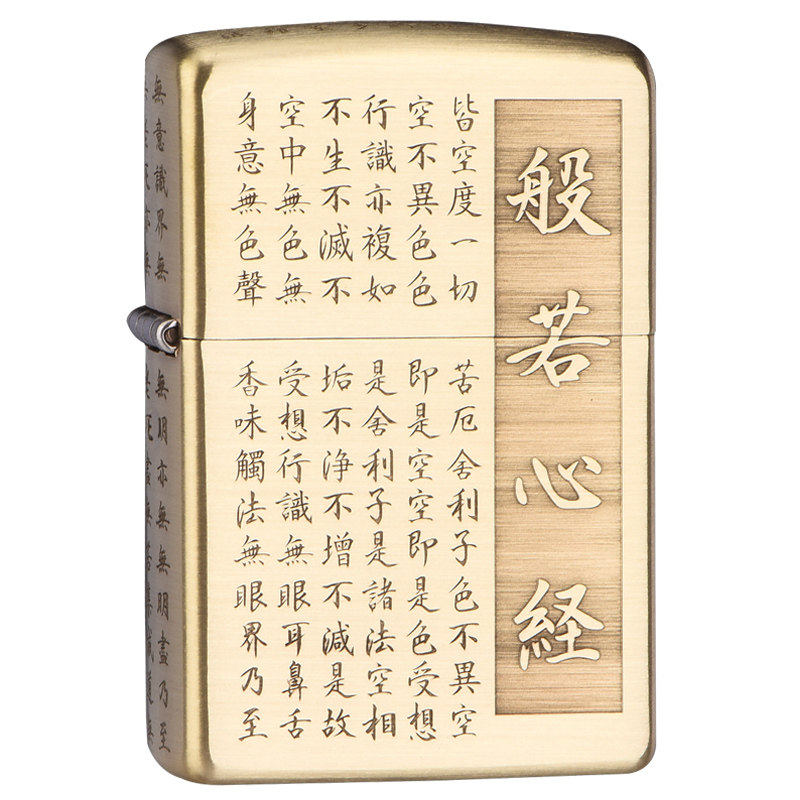 般若心経
皆空度一切苦厄舍利子色不異空
空不異色色即是空空即是色受想
行識亦複如是舍利子是諸法空相
不生不滅不垢不浄不增不減是故
空中無色無受想行識無眼耳鼻舌
身意無色聲香味觸法無眼界乃至
無意識界無無明亦無無明盡乃至